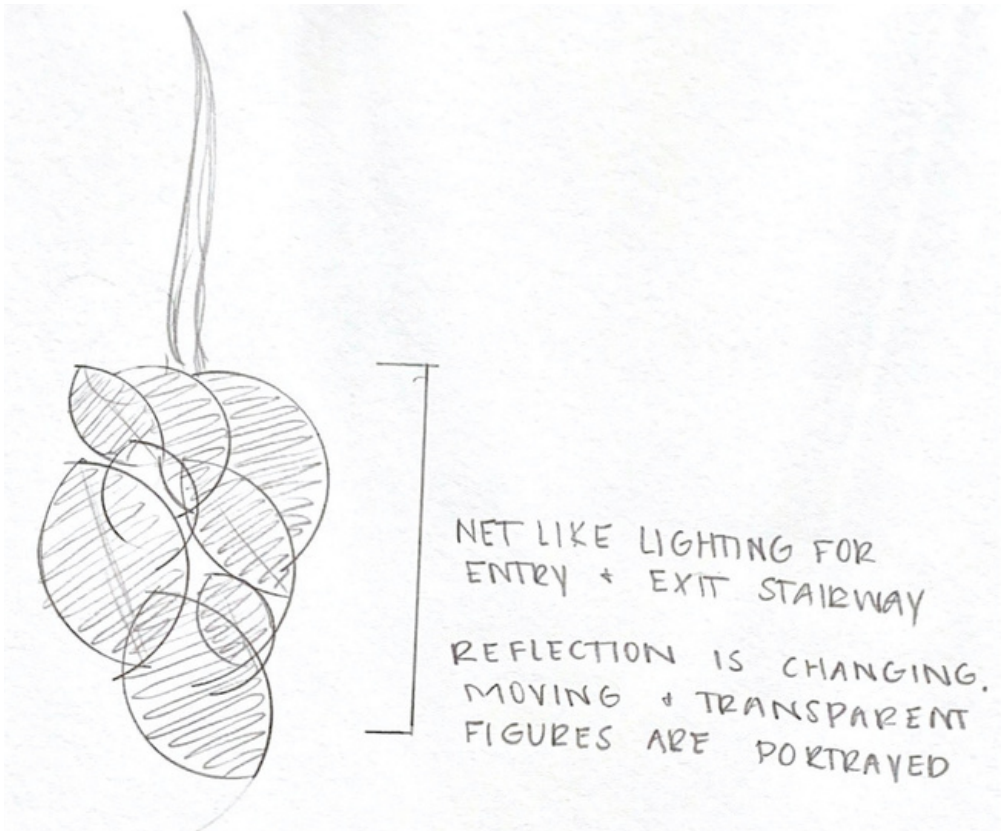 NET LIKE LIGHTING FOR
ENTRY + EXIT STAIRWAY
REFLECTION IS CHANGING.
MOVING + TRANSPARENT
FIGURES ARE PORTRAYED